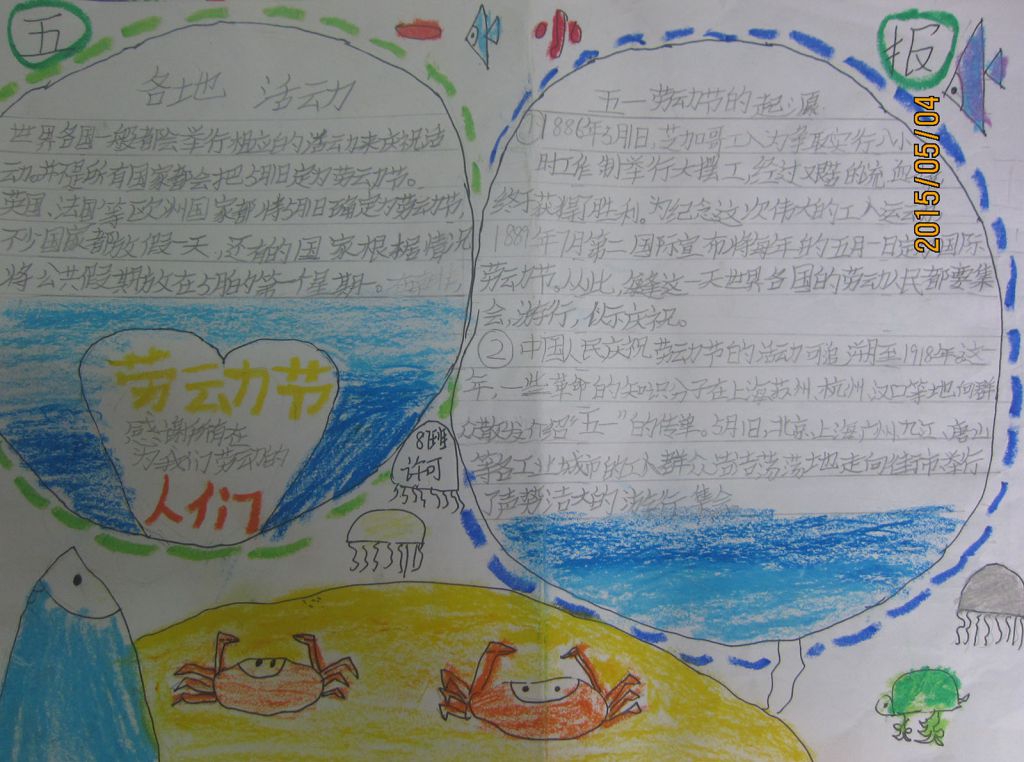 五 一 小 报
2015/05/04
各地 活动
世界各国一般都会举行相应的活动来庆祝活
动。并不是所有国家都会把5月1日定为劳动节。
英国、法国等欧洲国家都将5月1日确定为劳动节,
不少国家都放假一天,还有的国家根据情况
将公共假期放在5月的第一个星期一。
劳动节
感谢所有在
为我们劳动的
人们
8班
许可
五一劳动节的起源
①1886年5月1日,芝加哥工人为争取实行八小
时工作制举行大罢工,经过艰苦的流血
终于获得了胜利。为纪念这次伟大的工人运动
1889年7月第二国际宣布将每年的五月一日定国际
劳动节。从此,每逢这一天世界各国的劳动人民都要集
会,游行,以示庆祝。
②中国人民庆祝劳动节的活动可追溯至1918年这
年,一些革命的知识分子在上海苏州、杭州、汉口等地向群
众散发介绍“五一”的传单。5月1日,北京、上海广州九江、唐山
等各工业城市的工人群众浩浩荡荡地走向街市举行
了声势浩大的游行、集会。